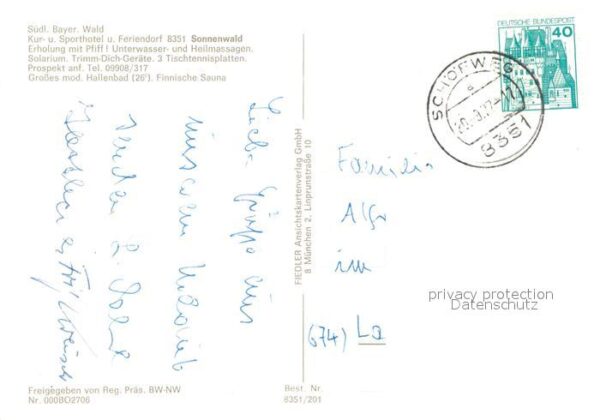 Südl. Bayer. Wald
Kur- u. Sporthotel u. Feriendorf 8351 Sonnenwald
Erholung mit Pfiff! Unterwasser- und Heilmassagen.
Solarium. Trimm-Dich-Geräte. 3 Tischtennisplatten.
Prospekt anf. Tel. 09908/317
Großes mod. Hallenbad (26°). Finnische Sauna
Liebe Grüße aus
unserem Urlaub
senden
Freigegeben von Reg. Präs. BW-NW
Nr. 000BO2706
FIEDLER Ansichtskartenverlag GmbH
8 München 2, Linprunstraße 10
Best. Nr.
8351/201
DEUTSCHE BUNDESPOST
40
SCHÖFWEG
8351
Familie
im
(674) La
privacy protection
Datenschutz